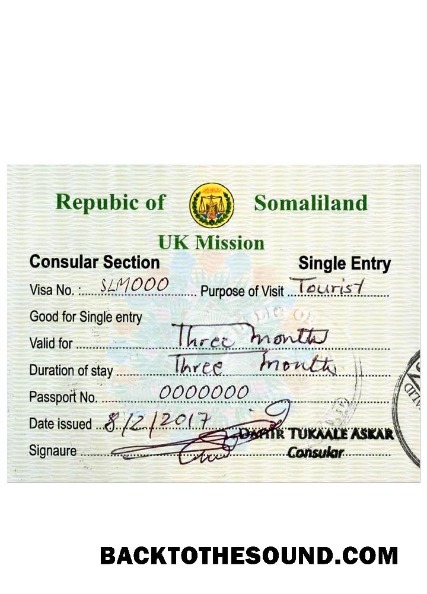 Repubic of Somaliland
UK Mission
Consular Section Single Entry
Visa No. : SLM000 Purpose of Visit Tourist
Good for Single entry
Valid for Three month
Duration of stay Three month
Passport No. 0000000
Date issued 8/2/2017
Signaure DAHIR TUKAALE ASKAR
Consular
BACKTOTHESOUND.COM